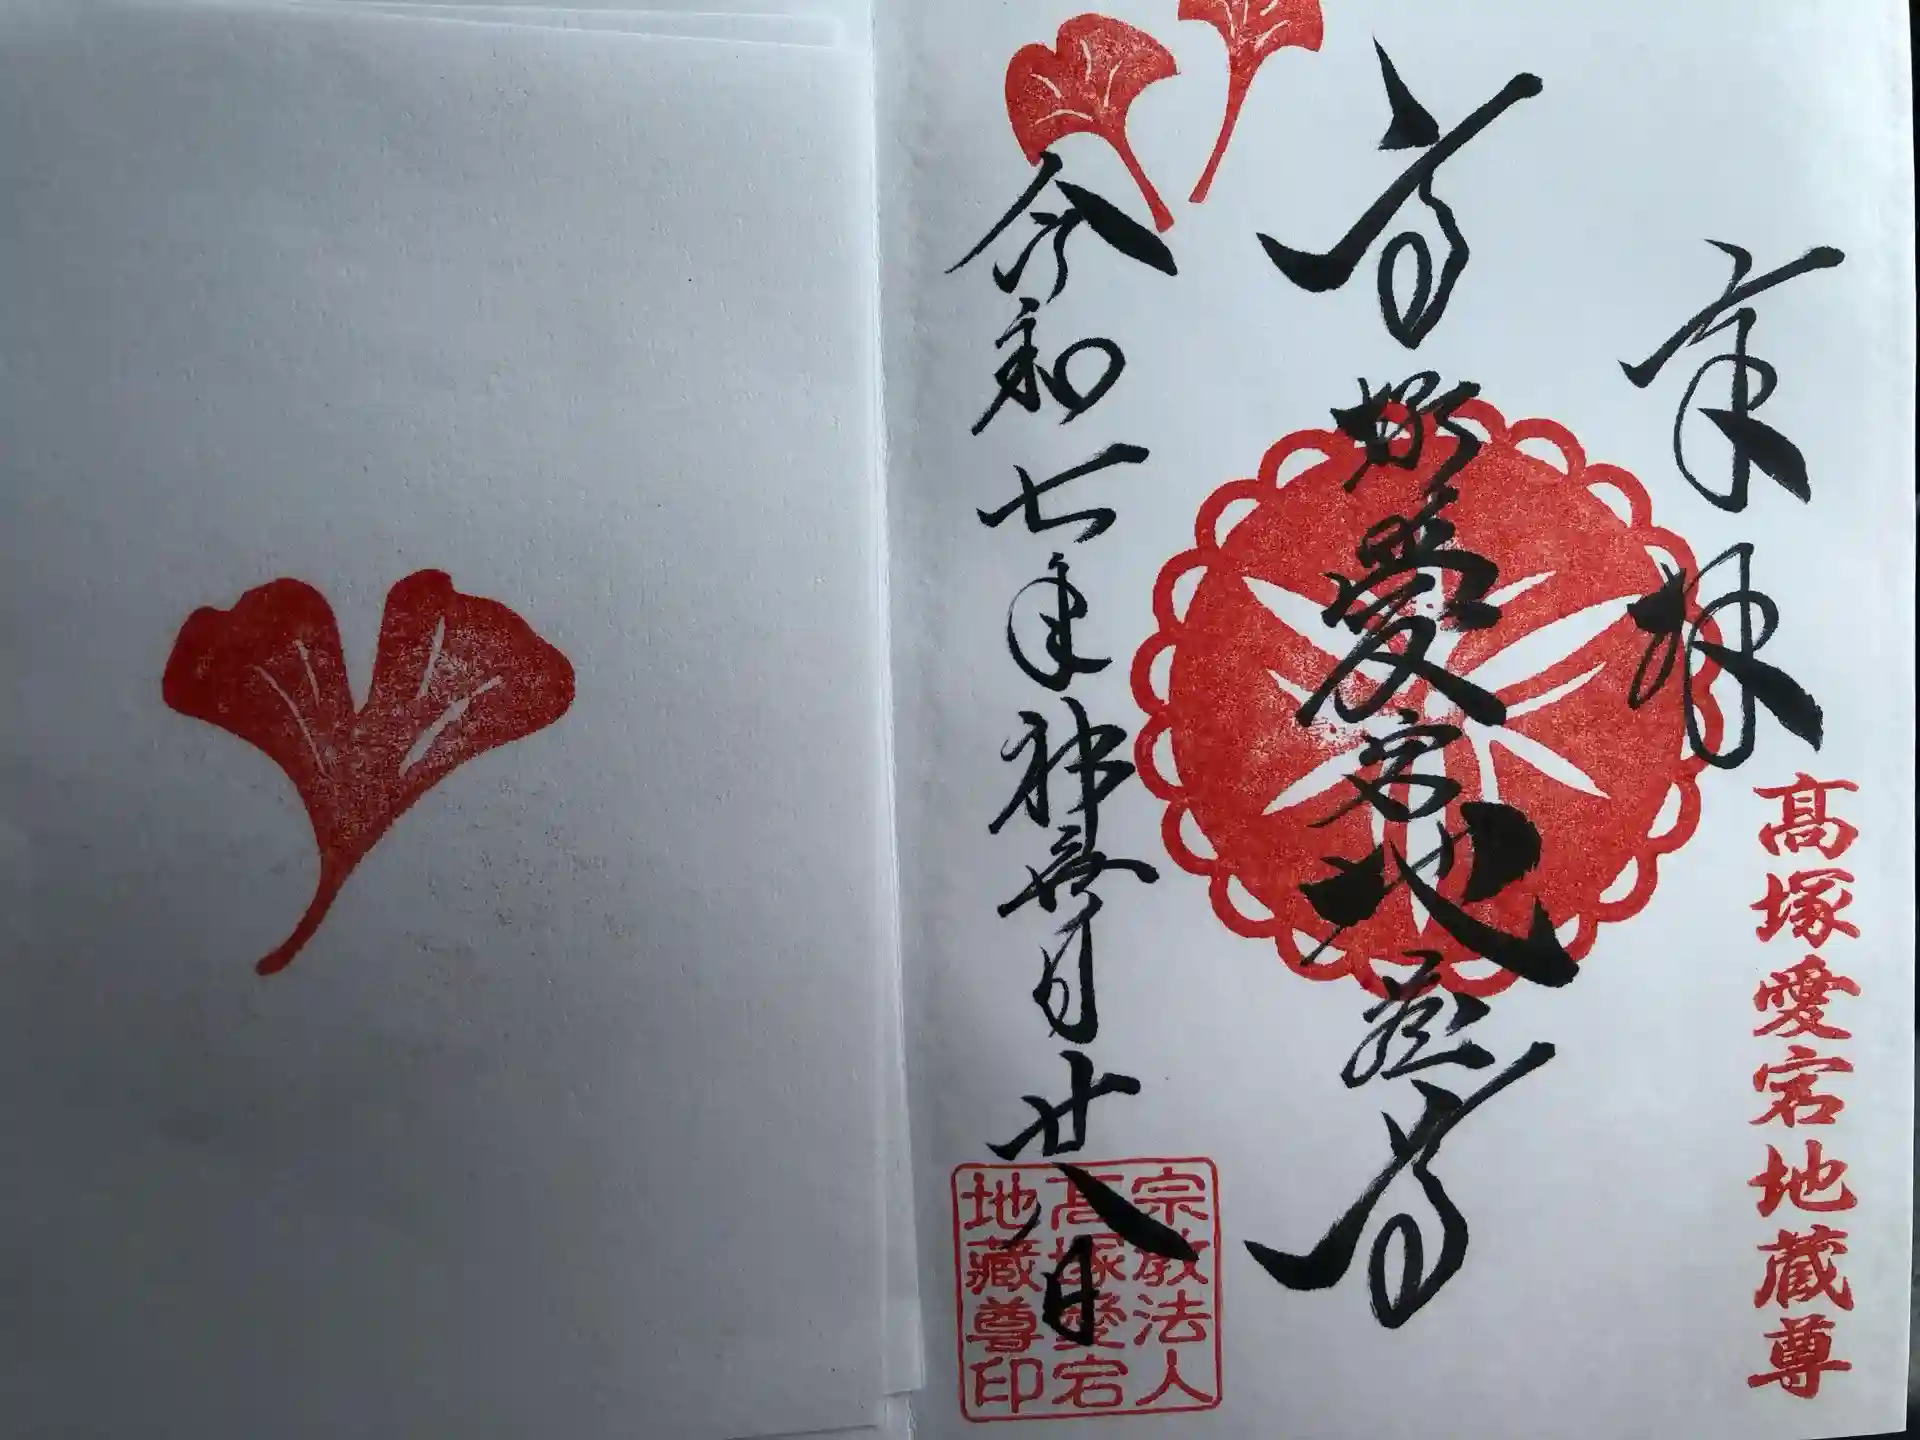 奉拝
髙塚愛宕地蔵尊
高塚愛宕地蔵尊
令和七年神無月廿八日
宗教法人
髙塚愛宕
地蔵尊印